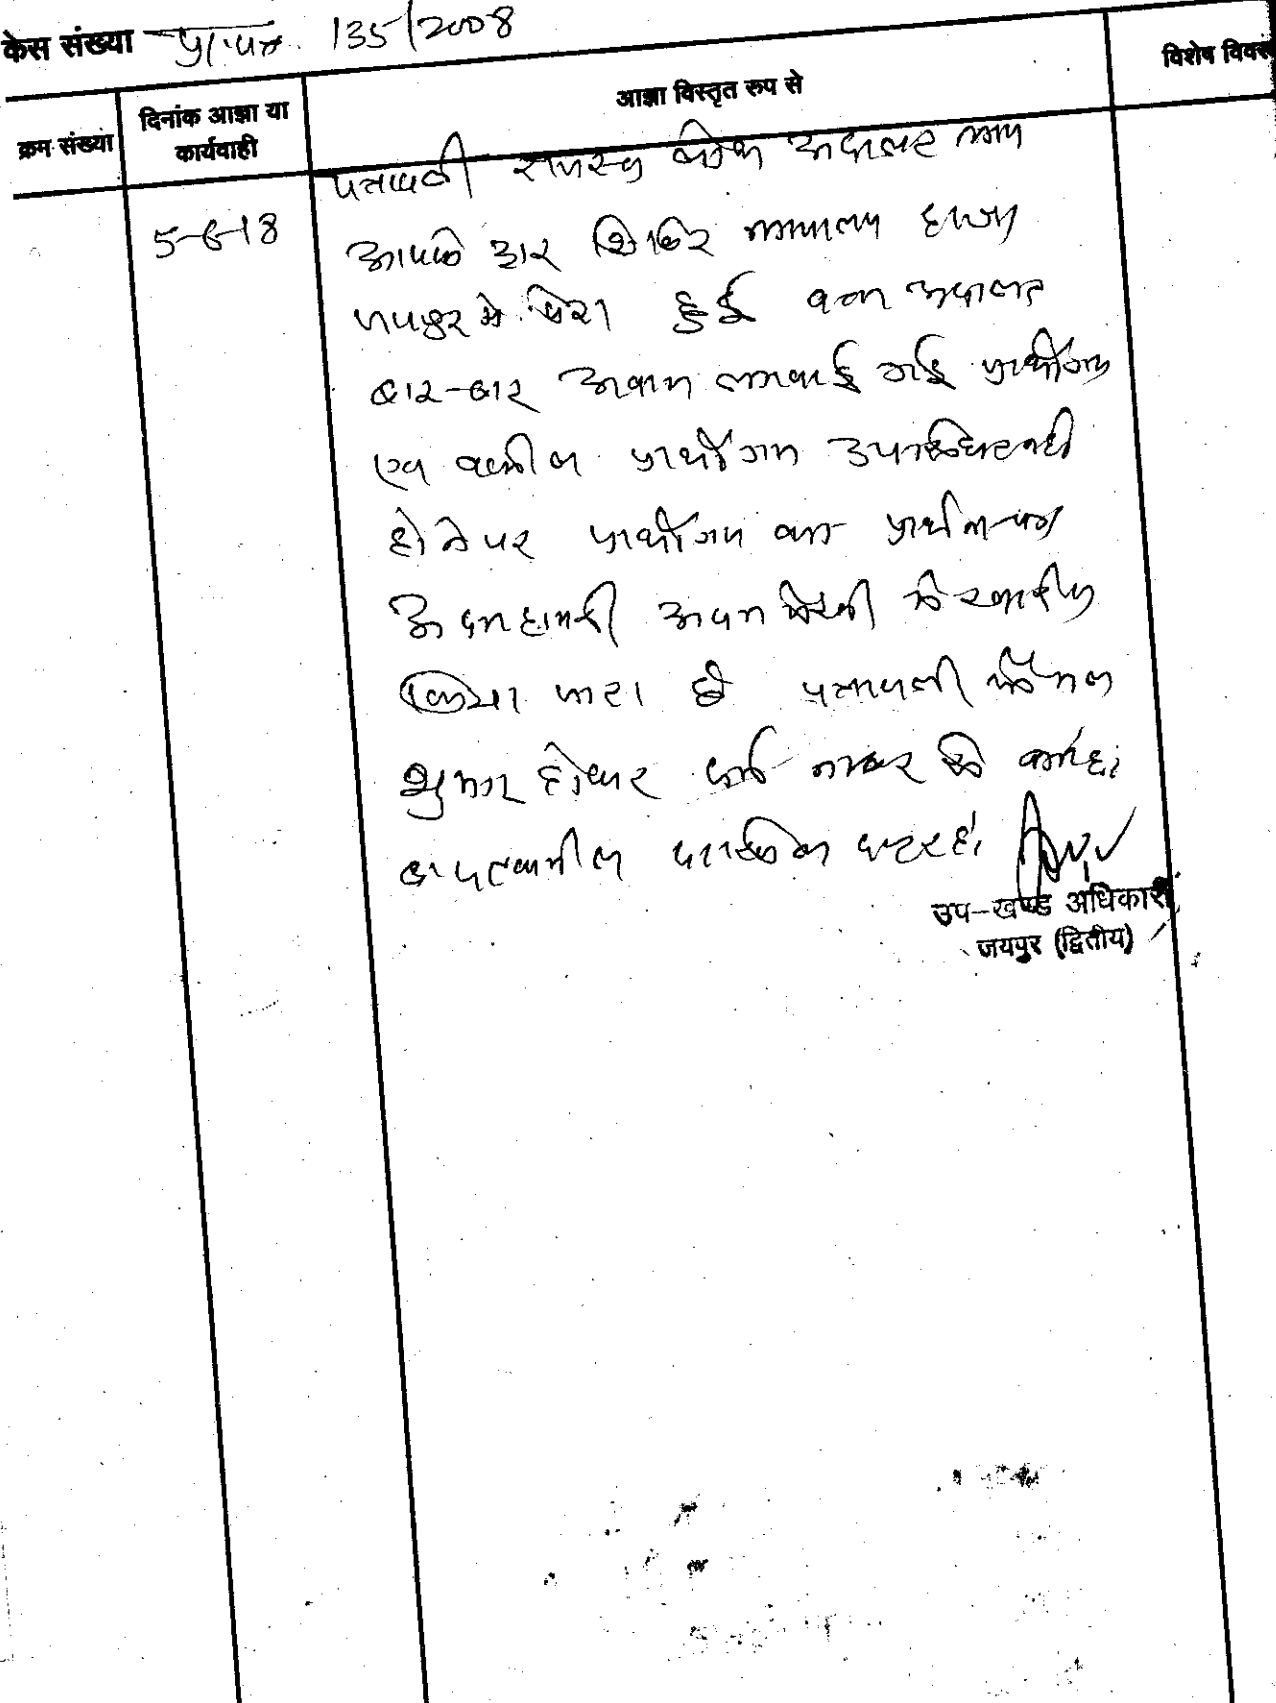 केस संख्या प्रा.पत्र. 135/2008
क्रम संख्या
दिनांक आज्ञा या
कार्यवाही
आज्ञा विस्तृत रुप से
विशेष विवर
5-6-18
पत्रावली राजस्व लोक अदालत न्याय
आपके द्वार शिविर
जयपुर मे पेश हुई वक्त अदालत
बार-बार आवाज लगवाई गई प्रार्थीगण
एवं वकील प्रार्थीगण उपस्थित नही
होने पर प्रार्थीगण का प्रार्थना-पत्र
अदमहाजरी अदम पैरवी मे खारीज
किया जाता है पत्रावली फैसल
शुमार होकर नम्बर से कम हो
दाखिल दफ्तर हो
उप-खण्ड अधिकारी
जयपुर (द्वितीय)